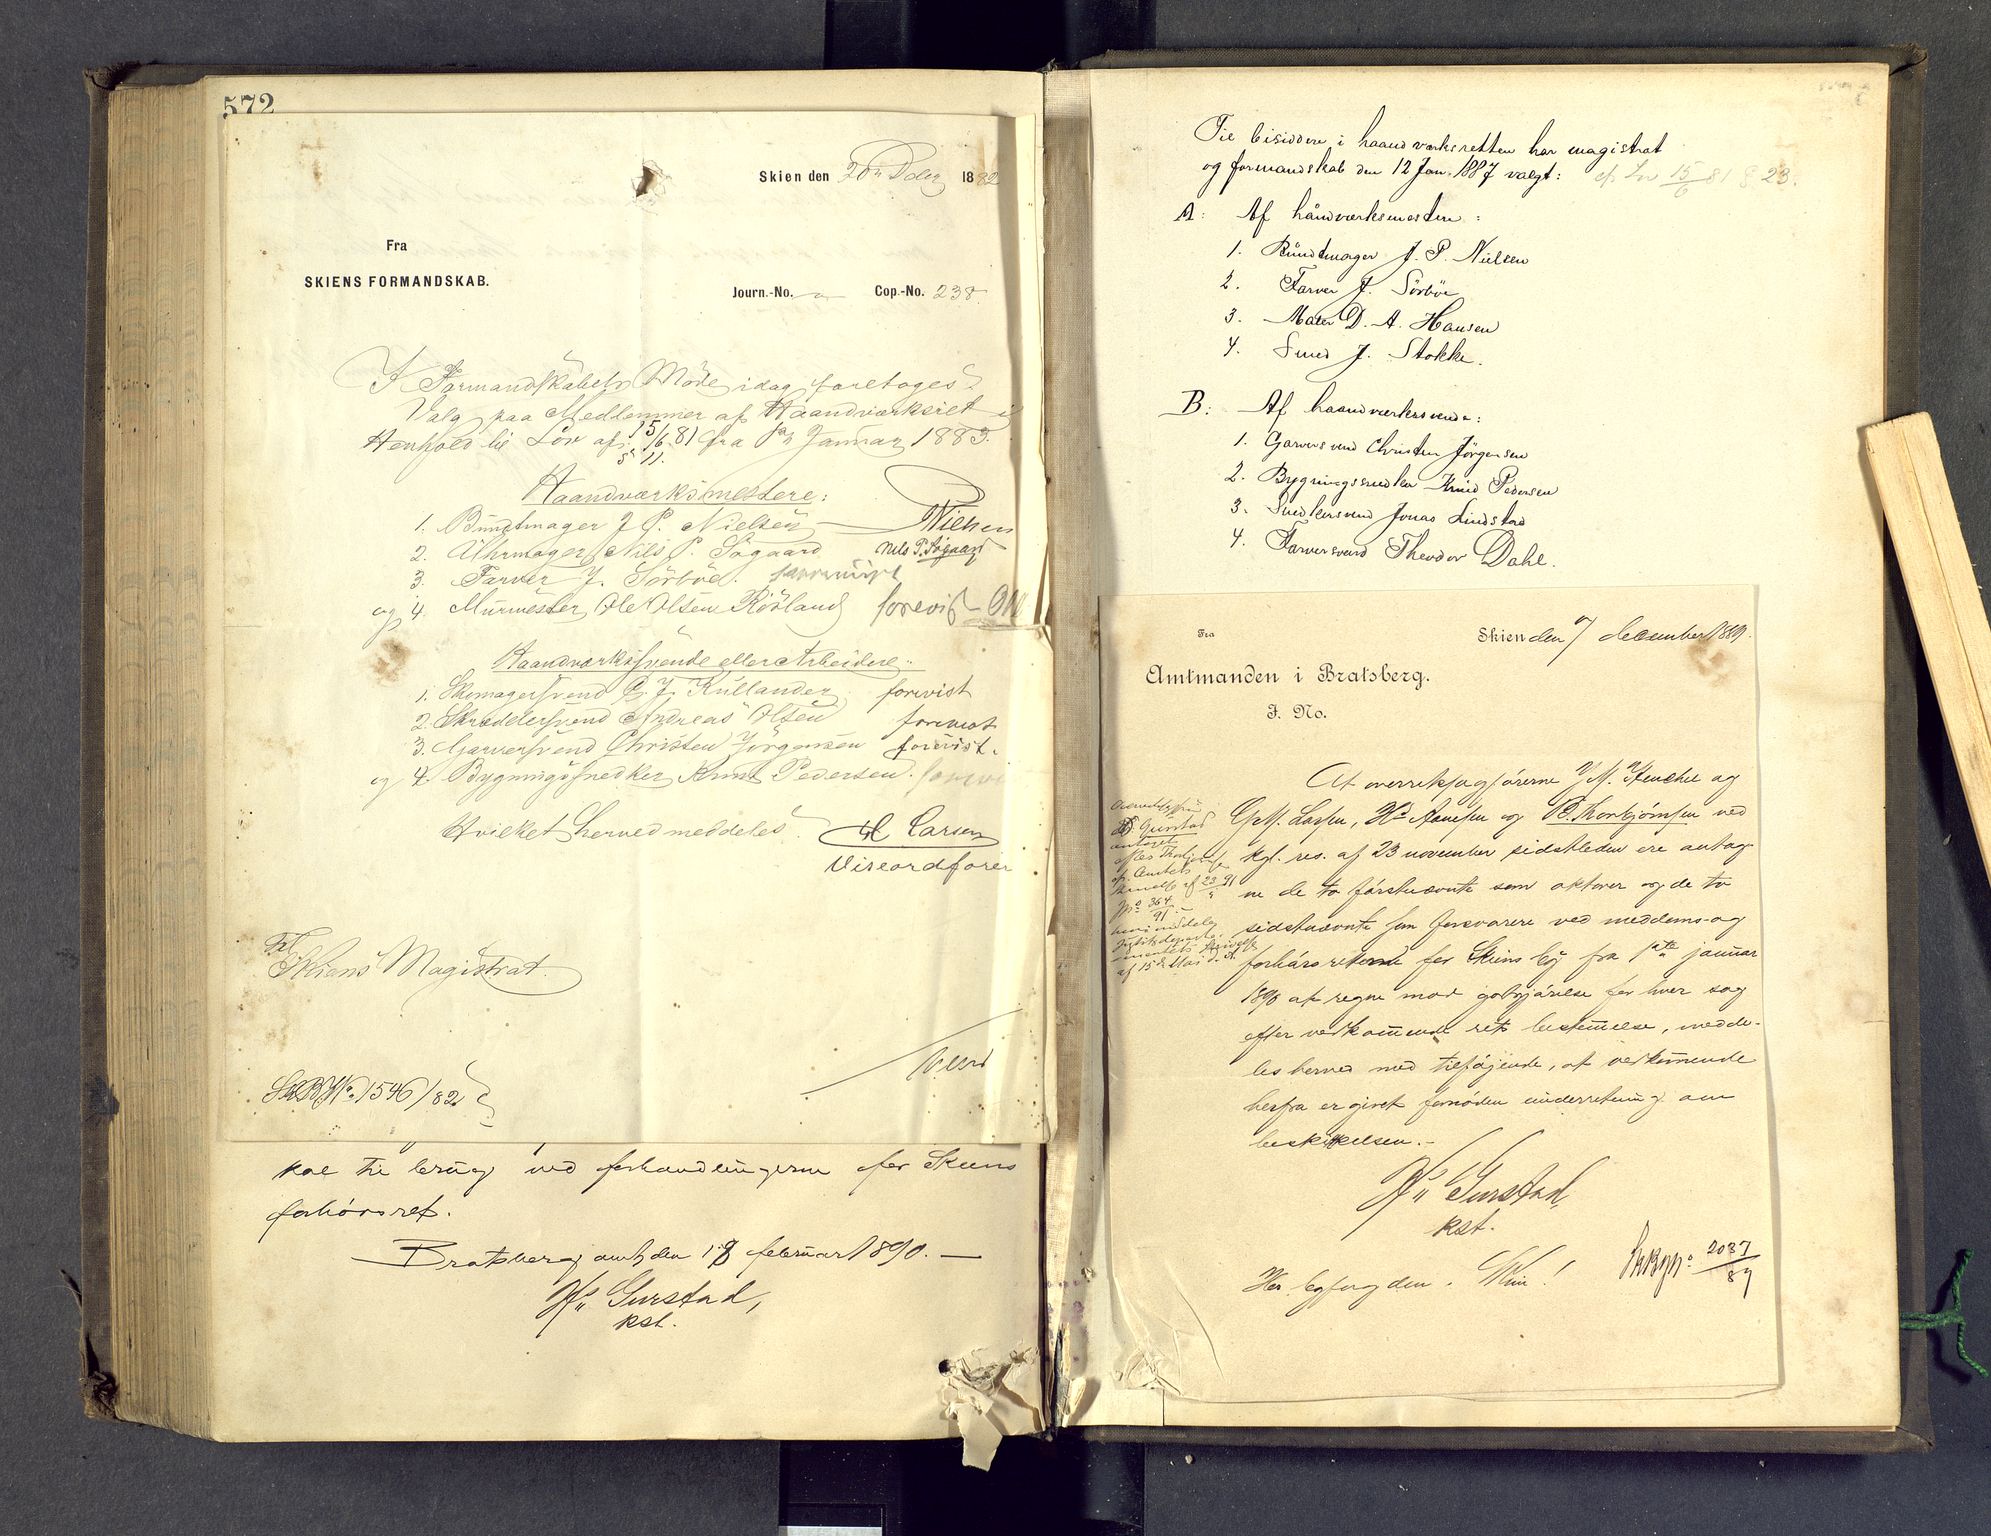 572
Skien den 20de Decbr 1882
Fra
SKIENS FORMANDSKAB.
Journ.-No. Cop.-No. 238.
I Formandskabets Møde idag foretoges
Valg paa Medlemmer af Haandværksret i
Henhold til Lov af 15/6 81 fra 1ste Januar 1883.
§ 11.
Haandværksmestere:
1. Bundtmager J P. Nielsen Nielsen
2. Uhrmager Nils P. Søgaard Nils P. Søgaard
3. Farver J. Sörböe.
og 4. Murmester Ole Olsen Röisland forevist
Haandværkssvende eller Arbeidere:
1. Skomagersvend C. J. Kullander forevist
2. Skræddersvend Andreas Olsen forevist
3. Garversvend Christen Jörgensen forevist.
og 4. Bygningssnedker Knud Pedersen.
Hvilket herved meddeles. Larsen
Viceordfører
Til
Skiens Magistrat.
Vend
1546/82
kol til brug ved forhandlingerne for Skiens
forhørsret.
Bratsberg amt, den 18 februar 1890.
Hs Gurstad,
kst.
Til bisiddere i haandværksretten har magistrat
og formandskab den 12 Jan. 1887 valgt: cf Lov 15/6 81 § 23.
A: Af håndværksmestere:
1. Bundtmager J. P. Nielsen
2. Farver J. Sörböe
3. Maler D. A. Hansen
4. Smed J. Stokke.
B: Af haandværkersvende:
1. Garversvend Christen Jörgensen
2. Bygningssnedker Knud Pedersen
3. Snedkersvend Jonas Lindstad
4. Farversvend Theodor Dahl.
Fra Skien den 7 december 1889.
Amtmanden i Bratsberg.
J. No.
At overretssagførerne J. M. Stenchel og
G. M. Lassen, Hs Aanesen og P. Thorbjørnsen ved
kgl. res. af 23 november sidstleden ere antag-
ne de to førstnævnte som aktorer og de to
sidstnævnte som forsvarere ved meddoms- og
forhørsretterne for Skiens by fra 1ste januar
1890 at regne mod godtgjørelse for hver sag
efter vedkommende rets bestemmelse, medde-
les herved med tilføiende, at vedkommende
herfra er givet fornøden underretning om
beskikkelsen.
Hs Gurstad
kst.
Hr. byfogden. Skien! 2037/89
Gurstad
antaget
23/5 91
364/91
af 15de Mai d. A.